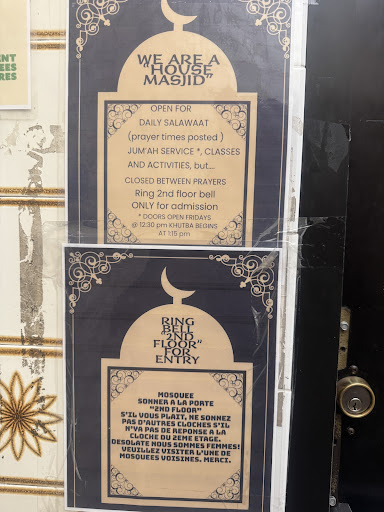 ENT
EES
RES
WE ARE A
"HOUSE
MASJID"
OPEN FOR
DAILY SALAWAAT
(prayer times posted )
JUM'AH SERVICE *, CLASSES
AND ACTIVITIES, but....
CLOSED BETWEEN PRAYERS
Ring 2nd floor bell
ONLY for admission
* DOORS OPEN FRIDAYS
@ 12:30 pm KHUTBA BEGINS
AT 1:15 pm
RING
BELL
"2ND
FLOOR"
FOR
ENTRY
MOSQUEE
SONNER A LA PORTE
"2ND FLOOR"
S'IL VOUS PLAIT, NE SONNEZ
PAS D'AUTRES CLOCHES S'IL
N'YA PAS DE REPONSE A LA
CLOCHE DU 2EME ETAGE.
DESOLATE NOUS SOMMES FEMMES!
VEUILLEZ VISITER L'UNE DE
MOSQUEES VOISINES. MERCI.